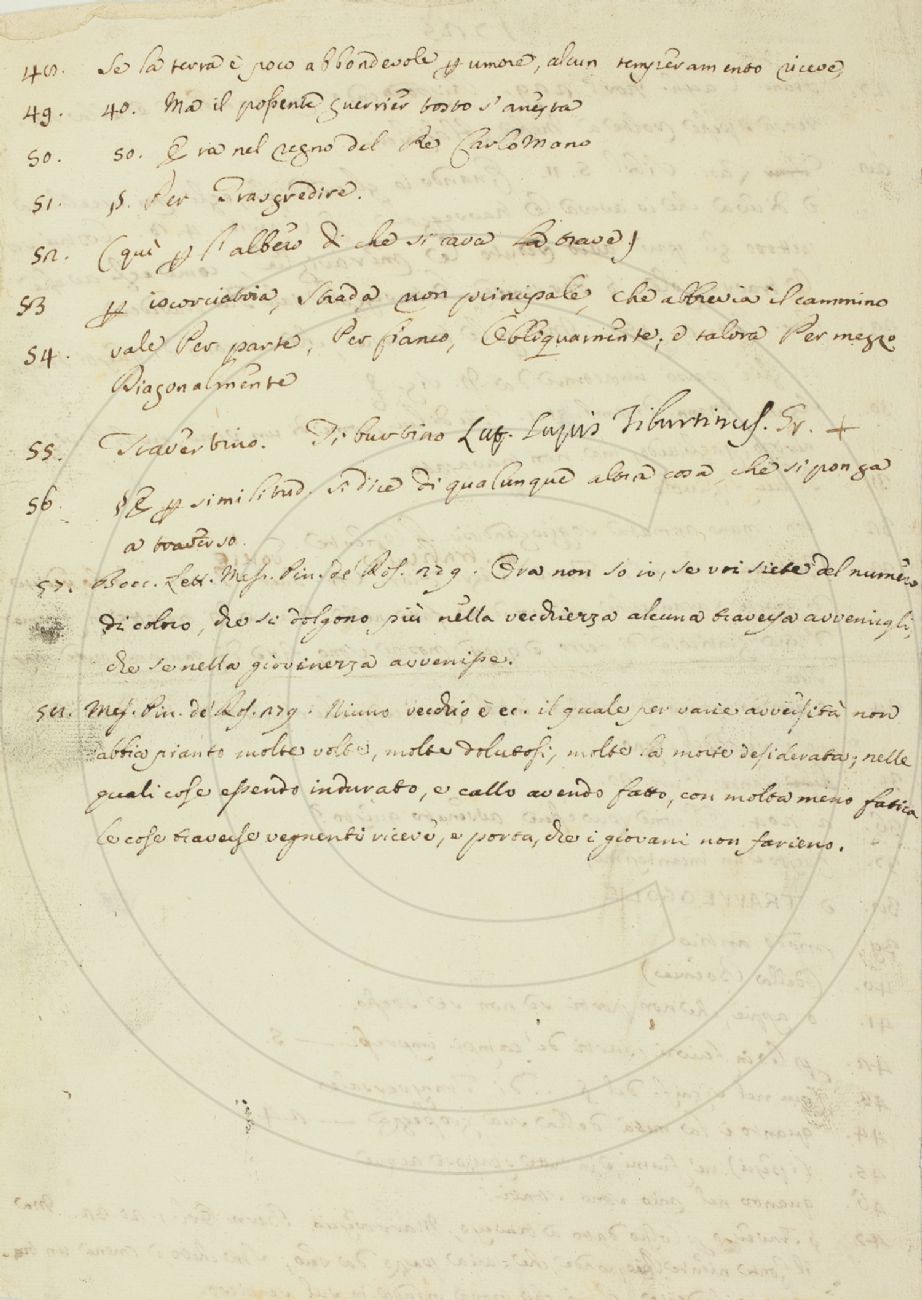 48. Se la terra è poco abbondevole ꝑ umore, alcun temperamento riceve
49. 40. Ma il possente guerrier tosto s'arresta
50. 50. Era nel regno del Re Carlo Mano
51. §. Per Trasgredire.
52. (quì ꝑ l'albero di che si cava la trave)
53 ꝑ iscorciatoia, Strada non principale, che abbrevia il cammino
54. vale Per parte, Per fianco, Obbliquamente; e talora Per mezzo
Diagonalmente
55. Travertino. Tiburtino Lat. Lapis Tiburtinus. Gr. +
56. §E ꝑ similitud. si dice di qualunque altra cosa che si ponga
a traverso.
57. Bocc. Lett. Mess. Pin. de' Ros. 279. Ora non so io, se voi siete del numero
di coloro, che si dolgono più nella vecchiezza alcuna traversa avvenirgli,
che se nella giovinezza avvenisse.
58. Mess. Pin. de' Ros. 279. Niuno vecchio è ec. il quale per varie avversità non
abbia pianto molte volte, molte dolutosi, molte la morte desiderata; nelle
quali cose essendo indurato, e callo avendo fatto, con molta meno fatica
le cose traverse vegnenti riceve, e porta, che i giovani non farieno.